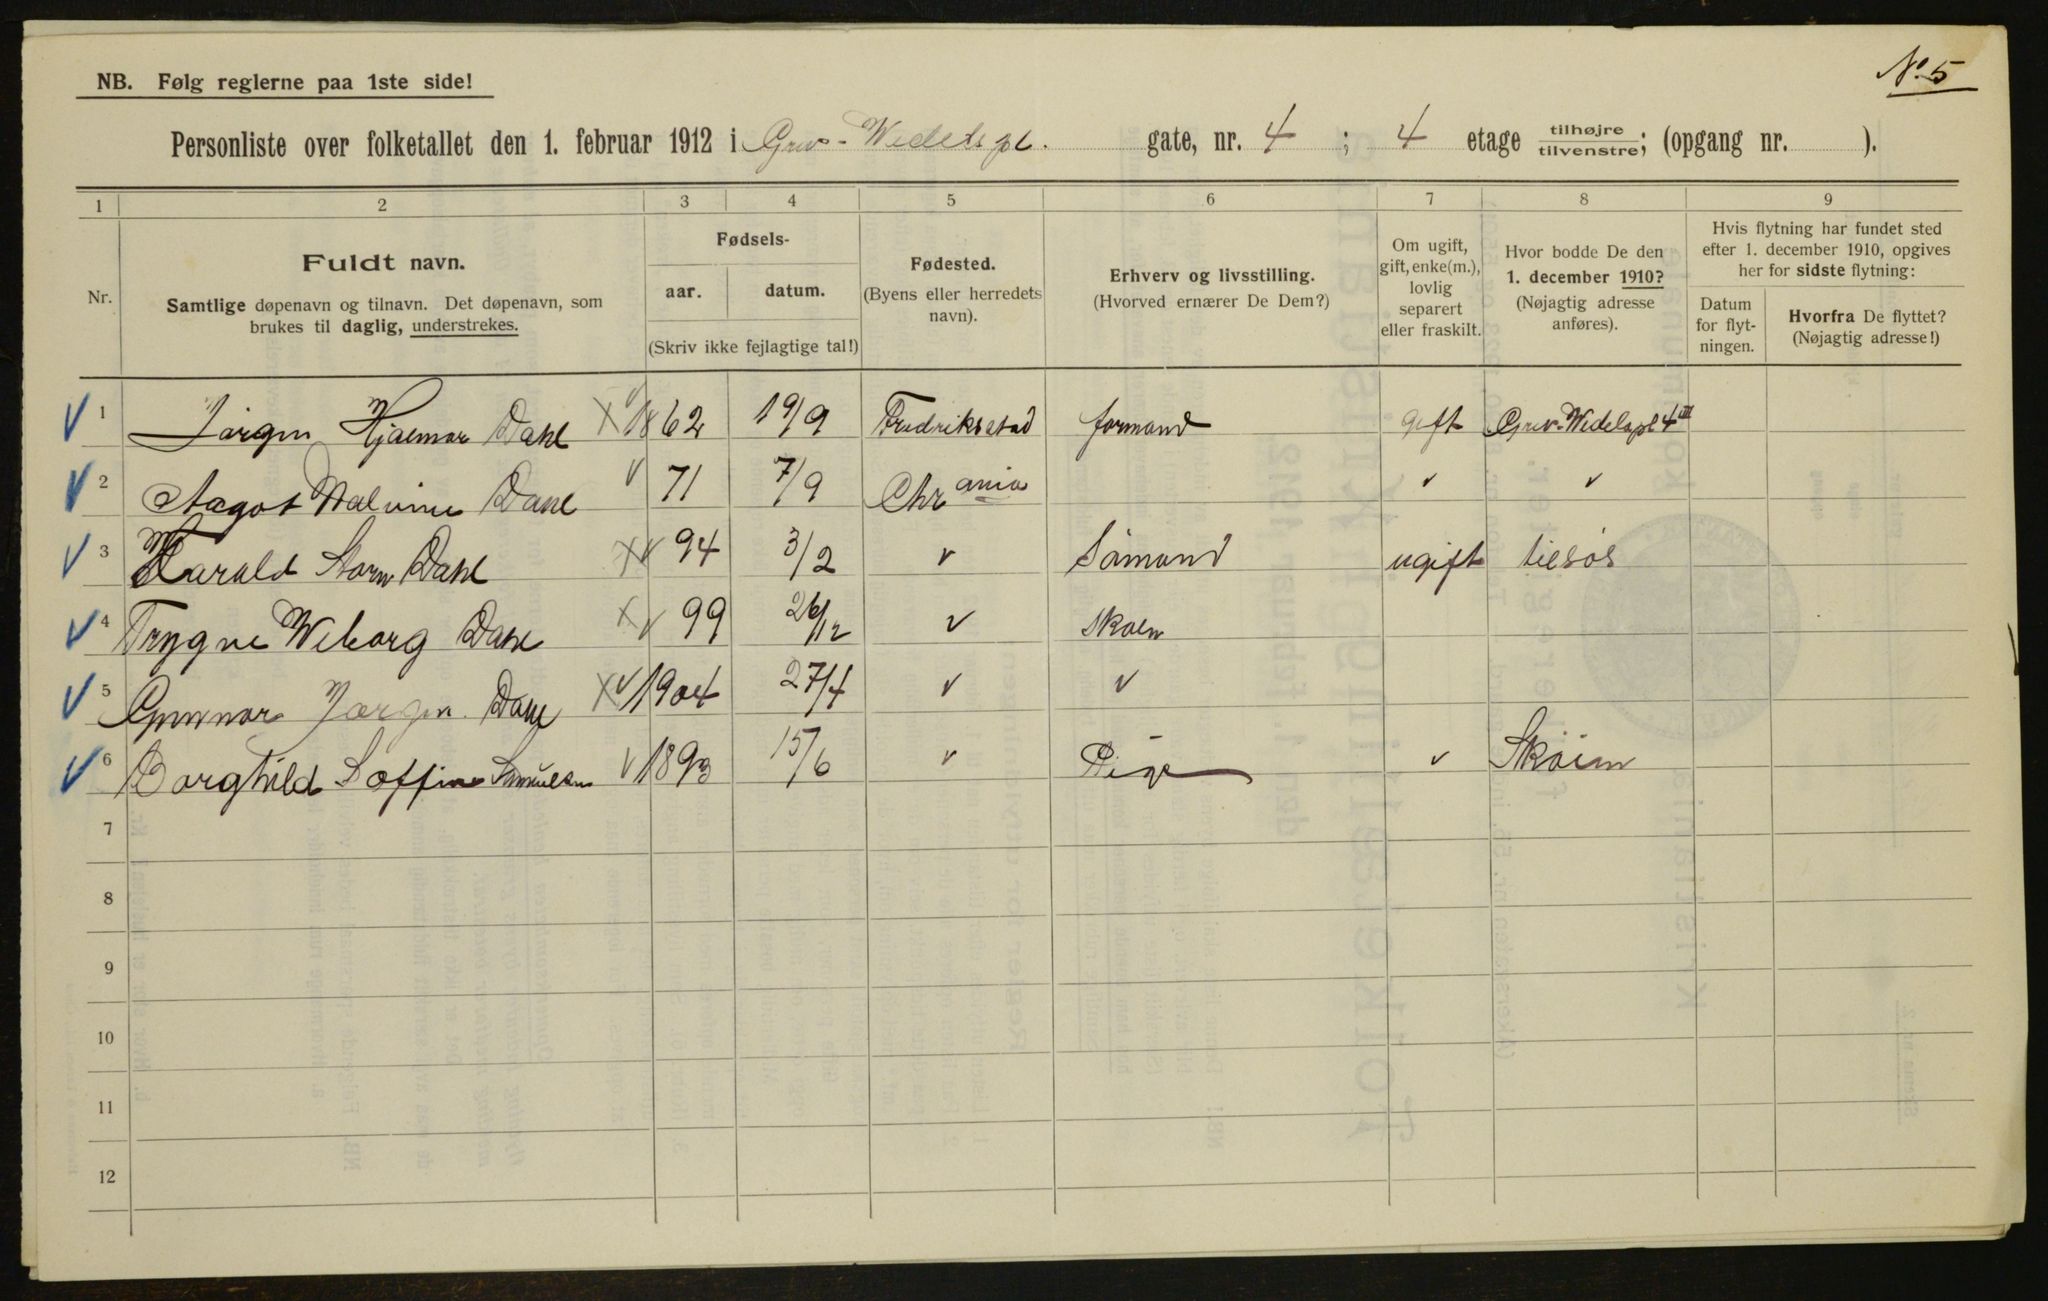 No. 5
NB. Følg reglerne paa 1ste side!
Personliste over folketallet den 1. februar 1912 i Grev-Wedels pl. gate, nr. 4 ; 4 etage tilhøjre/tilvenstre; (opgang nr. ).
1 2 3 4 5 6 7 8 9
Nr.
Fuldt navn.
Samtlige døpenavn og tilnavn. Det døpenavn, som
brukes til daglig, understrekes.
Fødsels-
aar. datum.
(Skriv ikke fejlagtige tal!)
Fødested.
(Byens eller herredets
navn).
Erhverv og livsstilling.
(Hvorved ernærer De Dem?)
Om ugift,
gift, enke(m.),
lovlig
separert
eller fraskilt.
Hvor bodde De den
1. december 1910?
(Nøjagtig adresse
anføres).
Hvis flytning har fundet sted
efter 1. december 1910, opgives
her for sidste flytning:
Datum
for flyt-
ningen.
Hvorfra De flyttet?
(Nøjagtig adresse!)
1 Jörgen Hjalmar Dahl 1862 19/9 Fredriksstad formand gift Grev-Wedelspl 4 III
2 Aagot Malvine Dahl 71 7/9 Chrania
3 Harald Storm Dahl 94 3/2 Sömand ugift tilsös
4 Trygve Wiborg Dahl 99 26/12 Skolen
5 Gunnar Jörgen Dahl 1904 27/4
6 Borghild Soffine Samuelsen 1893 15/6 Pige Sköien
7
8
9
10
11
12